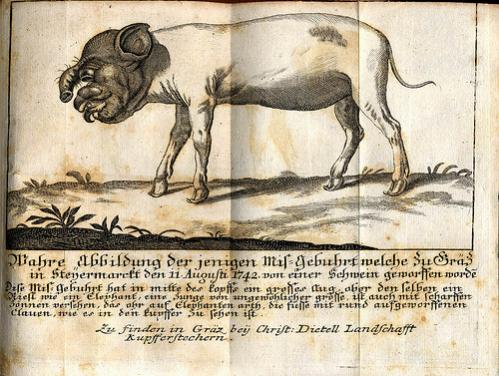 Wahre Abbildung der jenigen Mis-Gebuhrt welche zu Gräz
in Steyermarckt den 11 Augusti 1742. von einer Schwein geworffen worde
Dise Mis Gebuhrt hat in mitte des kopffs ein grosses Aug, ober den selben ein
wie ein Elephant, eine Zunge von ungewöhlicher grösse, ist auch mit scharffen
Zönnen versehen, das ohr auf Elephanten arth, die füsse mit rund aufgeworffenen
Clauen, wie es in den kupffer zu sehen ist.
Zu finden in Gräz, beÿ Christ: Dietell Landschafft
Kupfferstechern.